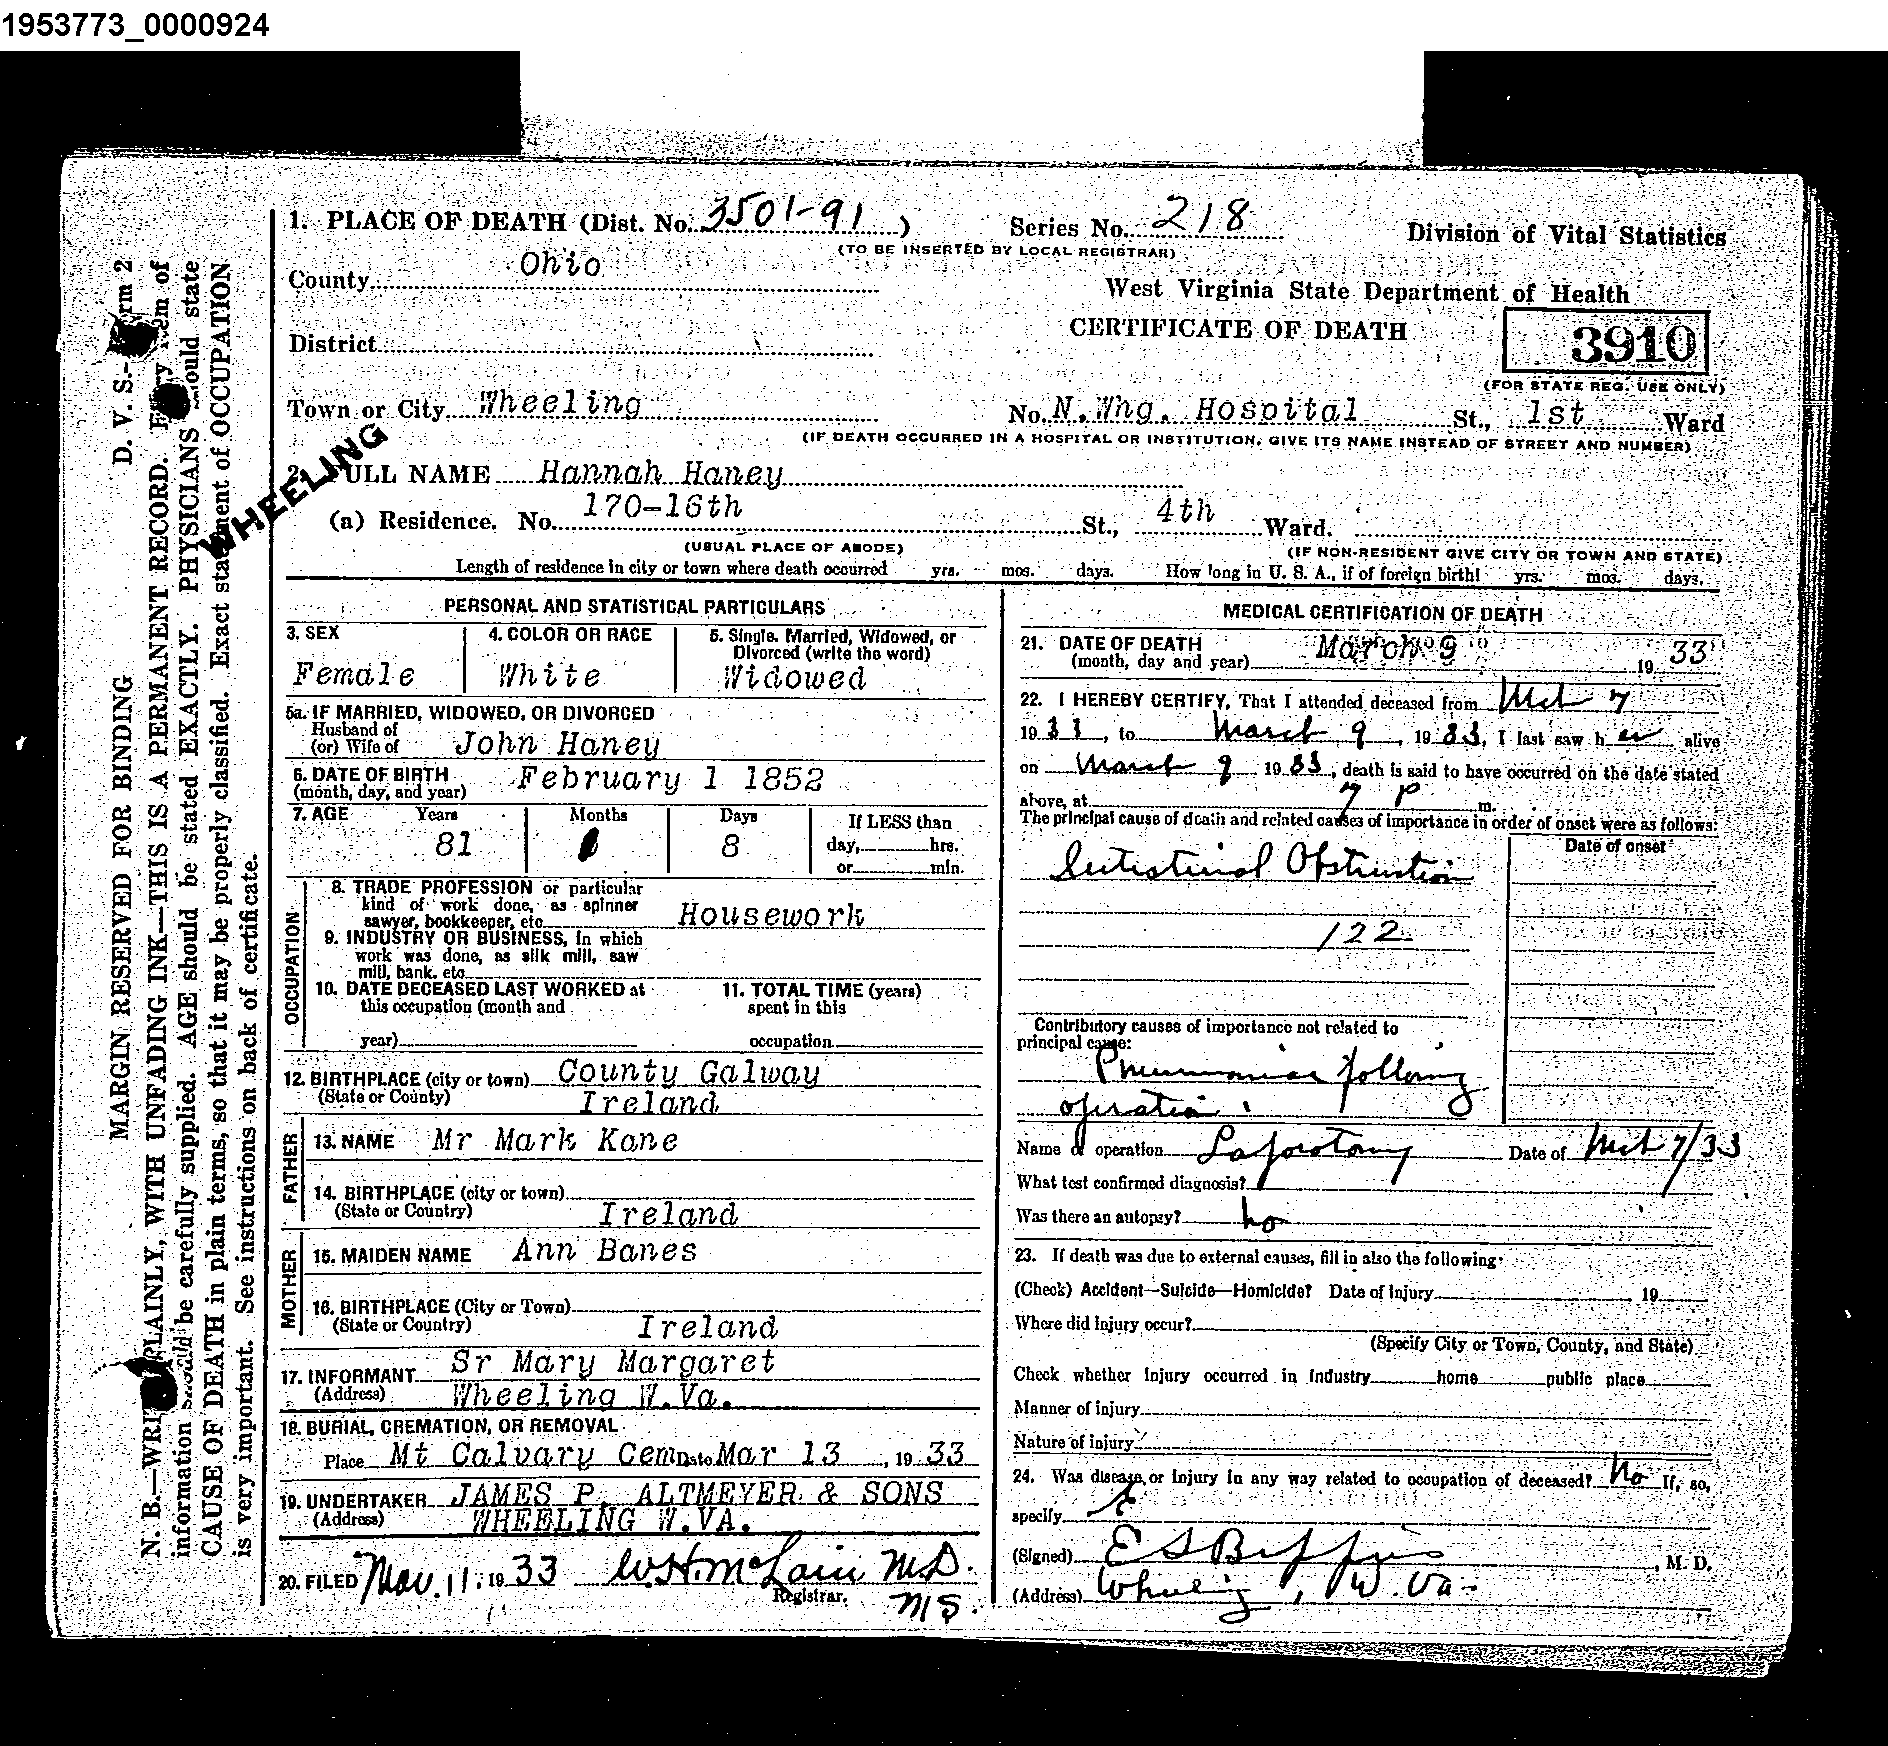 1953773_0000924
1. PLACE OF DEATH (Dist. No. 3501-91)
Series No. 218
(TO BE INSERTED BY LOCAL REGISTRAR)
Division of Vital Statistics
County Ohio
West Virginia State Department of Health
CERTIFICATE OF DEATH
3910
(FOR STATE REG. USE ONLY)
District
Town or City Wheeling
No. N. Whg. Hospital St., 1st Ward
(IF DEATH OCCURRED IN A HOSPITAL OR INSTITUTION, GIVE ITS NAME INSTEAD OF STREET AND NUMBER)
WHEELING
2. FULL NAME Hannah Haney
(a) Residence. No. 170-16th St., 4th Ward.
(USUAL PLACE OF ABODE)
(IF NON-RESIDENT GIVE CITY OR TOWN AND STATE)
Length of residence in city or town where death occurred yrs. mos. days. How long in U. S. A., if of foreign birth? yrs. mos. days.
D. V. S.- rm 2
MARGIN RESERVED FOR BINDING
N. B.—WRI PLAINLY, WITH UNFADING INK—THIS IS A PERMANENT RECORD. Every item of
information should be carefully supplied. AGE should be stated EXACTLY. PHYSICIANS should state
CAUSE OF DEATH in plain terms, so that it may be properly classified. Exact statement of OCCUPATION
is very important. See instructions on back of certificate.
PERSONAL AND STATISTICAL PARTICULARS
3. SEX
Female
4. COLOR OR RACE
White
5. Single, Married, Widowed, or
Divorced (write the word)
Widowed
5a. IF MARRIED, WIDOWED, OR DIVORCED
Husband of
(or) Wife of John Haney
6. DATE OF BIRTH
(month, day, and year) February 1 1852
7. AGE Years Months Days
81 1 8
If LESS than
day, hrs.
or min.
OCCUPATION
8. TRADE PROFESSION or particular
kind of work done, as spinner
sawyer, bookkeeper, etc. Housework
9. INDUSTRY OR BUSINESS, in which
work was done, as silk mill, saw
mill, bank, etc.
10. DATE DECEASED LAST WORKED at
this occupation (month and
year)
11. TOTAL TIME (years)
spent in this
occupation
12. BIRTHPLACE (city or town) County Galway
(State or County) Ireland
FATHER
13. NAME Mr Mark Kane
14. BIRTHPLACE (city or town)
(State or Country) Ireland
MOTHER
15. MAIDEN NAME Ann Banes
16. BIRTHPLACE (City or Town)
(State or Country) Ireland
17. INFORMANT Sr Mary Margaret
(Address) Wheeling W.Va.
18. BURIAL, CREMATION, OR REMOVAL
Place Mt Calvary Cem Date Mar 13, 1933
19. UNDERTAKER JAMES P. ALTMEYER & SONS
(Address) WHEELING W.VA.
20. FILED Mar. 11, 1933 W.H. McLain M.D.
Registrar.
MS.
MEDICAL CERTIFICATION OF DEATH
21. DATE OF DEATH
(month, day and year) March 9 1933
22. I HEREBY CERTIFY, That I attended deceased from Mch 7
1933, to March 9, 1933, I last saw her alive
on March 9 1933, death is said to have occurred on the date stated
above, at 7 P m.
The principal cause of death and related causes of importance in order of onset were as follows:
Date of onset
Intestinal Obstruction
122
Contributory causes of importance not related to
principal cause:
Pneumonia following
operation.
Name of operation Laparotomy Date of Mch 7/33
What test confirmed diagnosis?
Was there an autopsy? no
23. If death was due to external causes, fill in also the following:
(Check) Accident—Suicide—Homicide? Date of injury 19
Where did injury occur?
(Specify City or Town, County, and State)
Check whether injury occurred in industry home public place
Manner of injury
Nature of injury
24. Was disease, or injury in any way related to occupation of deceased? No If, so,
specify
(Signed) E S Bippus, M. D.
(Address) Wheeling, W. Va.